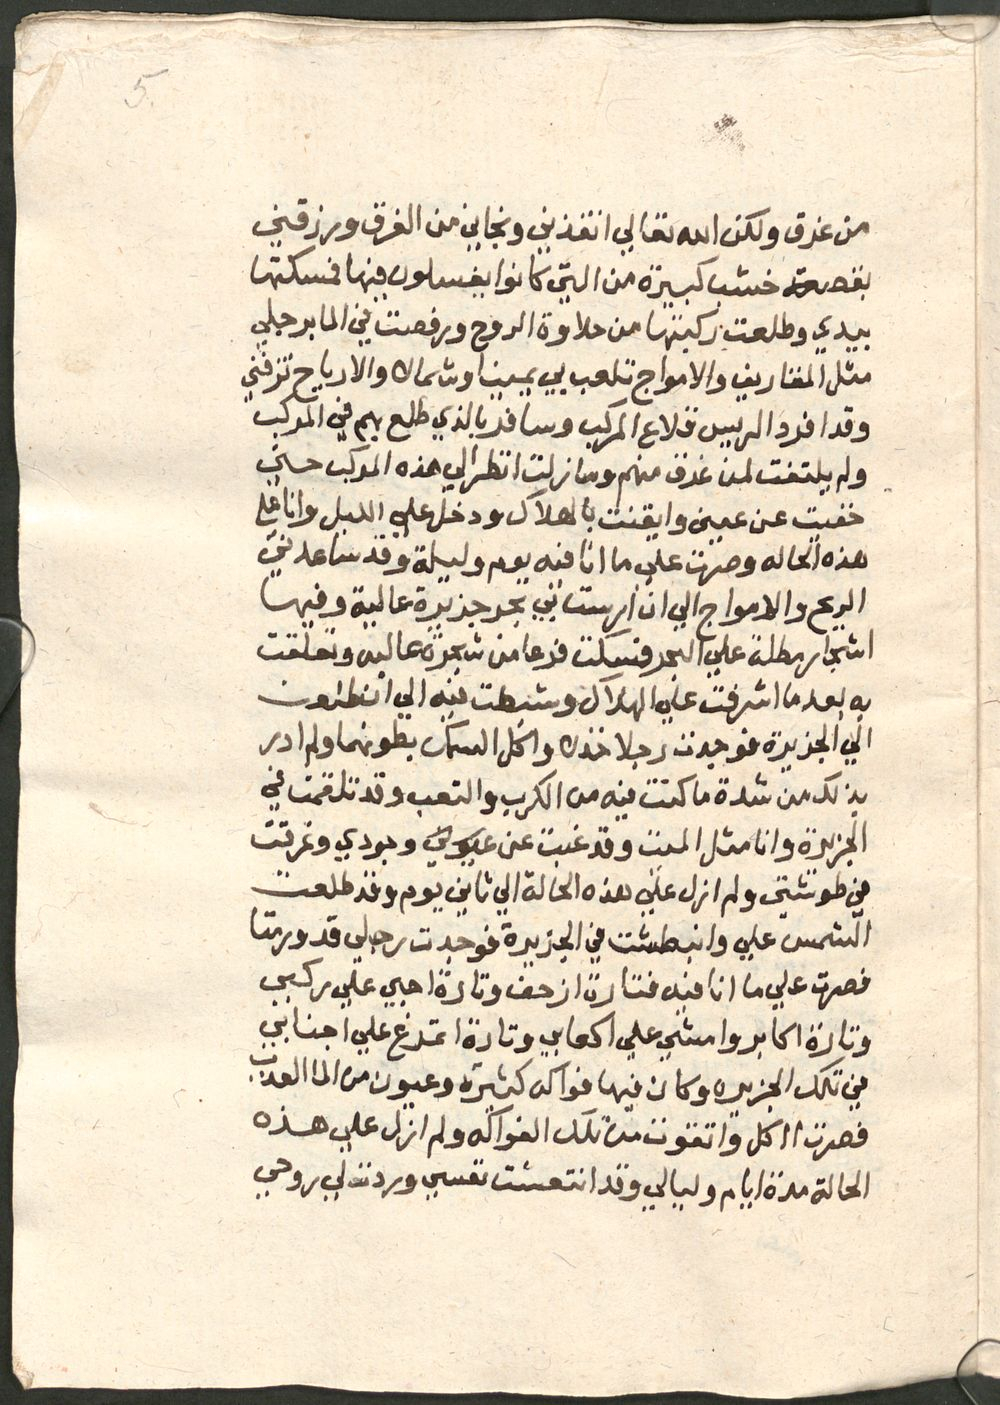 5
من غرق ولكن الله تعالي انقذني ونجاني من الغرق ورزقني
بقصعة خشب كبيرة من التي كانوا يغسلون فيها فمسكتها
بيدي وطلعت ركبتها من حلاوة الروح ورفصت في الما برجلي
مثل المقاريف والامواج تلعب بي يمينا وشمالا والارياح تزقني
وقد افرد الريس قلاع المركب وسافر بالذي طلع بهم في المركب
ولم يلتفت لمن غرق منهم وما زلت انظر الي هذه المركب حتي
خفيت عن عيني وايقنت بالهلاك ودخل علي الليل وانا علي
هذه الحاله وصرت علي ما انا فيه يوم وليلة وقد ساعدني
الريح والامواج الي ان ارستاني بجر جزيرة عالية وفيها
اشجار مطلة علي البحر فمسكت فرعا من شجرة عاليه وتعلقت
به بعد ما اشرفت علي الهلاك وشبطت فيه الي ان طلعت
الي الجزيرة فوجدت رجلا خدله واكل السمك بطونهما ولم ادر
بذلك من شدة ما كنت فيه من الكرب والتعب وقد تلقحت في
الجزيرة وانا مثل الميت وقد غبت عن وجودي وغرقت
في طوشتي ولم ازل علي هذه الحالة الي ثاني يوم وقد طلعت
الشمس علي وانبطشت في الجزيرة فوجدت رجلي قد ورمتا
فصرت علي ما انا فيه فتارة ازحف وتارة احبي علي ركبي
وتارة اكابر وامشي علي اكعابي وتارة اتمرغ علي اجنابي
في تلك الجزيره وكان فيها فواكه كثيرة وعيون من الما العذب
فصرت ااكل واتقوت من تلك الفواكه ولم ازل علي هذه
الحالة مدة ايام وليالي وقد انتعشت نفسي وردت لي روحي